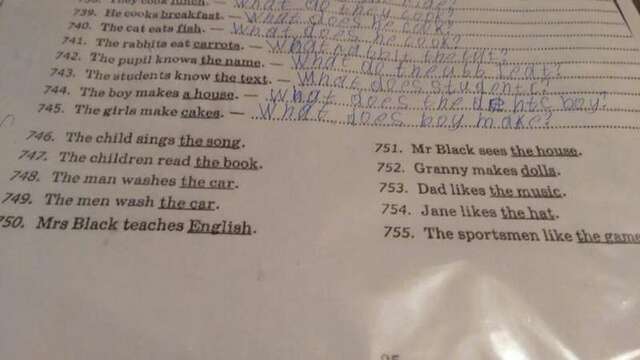 They cook lunch. — What do they cook?
739. He cooks breakfast. — What does he cook?
740. The cat eats fish. — What does he cook?
741. The rabbits eat carrots. — What
742. The pupil knows the name. — What do the
743. The students know the text. — What does students
744. The boy makes a house. — What does the boy?
745. The girls make cakes. — What does boy make?
746. The child sings the song.
747. The children read the book.
748. The man washes the car.
749. The men wash the car.
750. Mrs Black teaches English.
751. Mr Black sees the house.
752. Granny makes dolls.
753. Dad likes the music.
754. Jane likes the hat.
755. The sportsmen like the game